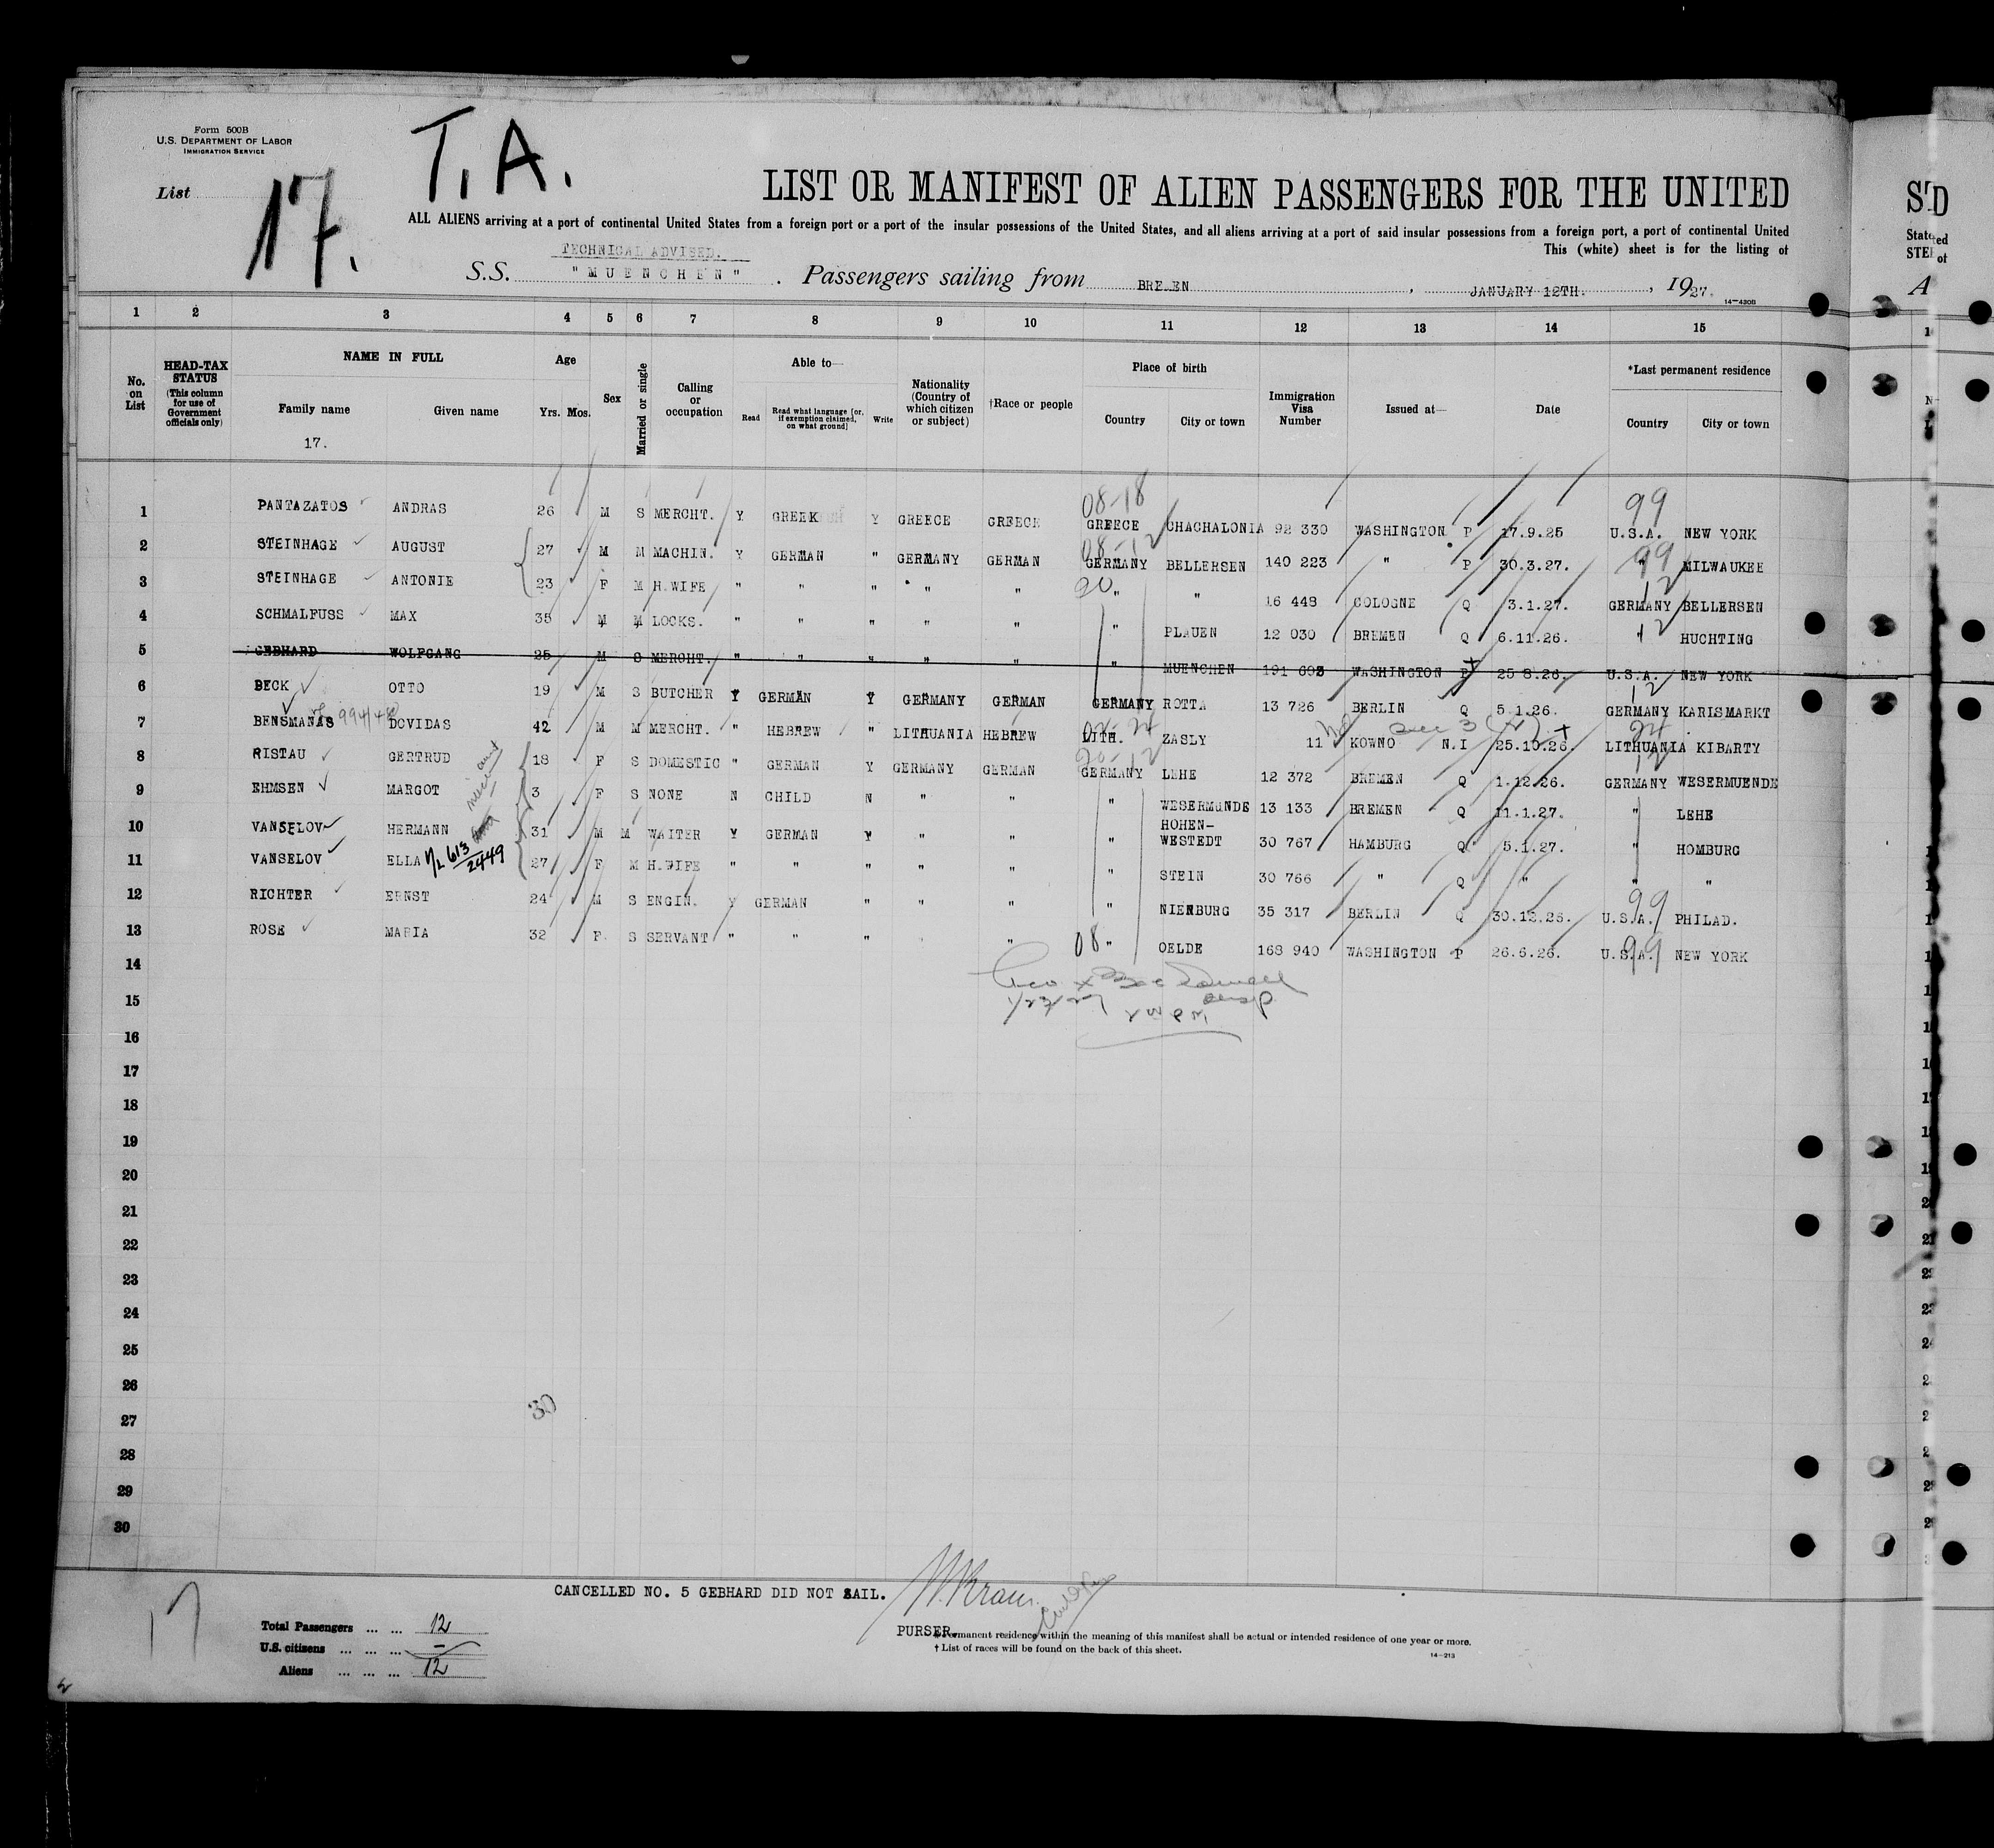 Form 500B
U.S. DEPARTMENT OF LABOR
IMMIGRATION SERVICE
List 17.
T.A.
LIST OR MANIFEST OF ALIEN PASSENGERS FOR THE UNITED
ALL ALIENS arriving at a port of continental United States from a foreign port or a port of the insular possessions of the United States, and all aliens arriving at a port of said insular possessions from a foreign port, a port of continental United
This (white) sheet is for the listing of
TECHNICAL ADVISED.
S.S. "MUENCHEN". Passengers sailing from BREMEN, JANUARY 12TH., 1927.
14-430B
1 2 3 4 5 6 7 8 9 10 11 12 13 14 15
No. on List
HEAD-TAX STATUS
(This column for use of Government officials only)
NAME IN FULL
Family name Given name
17.
Age
Yrs. Mos.
Sex
Married or single
Calling or occupation
Able to—
Read Read what language [or, if exemption claimed, on what ground] Write
Nationality (Country of which citizen or subject)
†Race or people
Place of birth
Country City or town
Immigration Visa Number
Issued at—
Date
*Last permanent residence
Country City or town
08-18 99
1 PANTAZATOS ANDRAS 26 M S MERCHT. Y GREEK Y GREECE GREECE GREECE CHACHALONIA 92 330 WASHINGTON P 17.9.25 U.S.A. NEW YORK
08-12 99
2 STEINHAGE AUGUST 27 M M MACHIN. Y GERMAN " GERMANY GERMAN GERMANY BELLERSEN 140 223 " P 30.3.27. " MILWAUKEE
20 12
3 STEINHAGE ANTONIE 23 F M H.WIFE " " " " " " " 16 448 COLOGNE Q 3.1.27. GERMANY BELLERSEN
12
4 SCHMALFUSS MAX 35 M M LOCKS. " " " " " " PLAUEN 12 030 BREMEN Q 6.11.26. " HUCHTING
5 GEBHARD WOLFGANG 25 M S MERCHT. " " " " " " MUENCHEN 191 603 WASHINGTON P 25 8.26. U.S.A. NEW YORK
12
6 BECK OTTO 19 M S BUTCHER Y GERMAN Y GERMANY GERMAN GERMANY ROTTA 13 726 BERLIN Q 5.1.26. GERMANY KARISMARKT
24
7 BENSMANAS DOVIDAS 42 M M MERCHT. " HEBREW " LITHUANIA HEBREW LITH. ZASLY 11 KOWNO N.I 25.10.26. LITHUANIA KIBARTY
20-12 12
8 RISTAU GERTRUD 18 F S DOMESTIC " GERMAN Y GERMANY GERMAN GERMANY LEHE 12 372 BREMEN Q 1.12.26. GERMANY WESERMUENDE
9 EHMSEN MARGOT 3 F S NONE N CHILD N " " " WESERMUNDE 13 133 BREMEN Q 11.1.27. " LEHE
aunt
niece
10 VANSELOV HERMANN 31 M M WAITER Y GERMAN Y " " " HOHEN-WESTEDT 30 767 HAMBURG Q 5.1.27. " HOMBURG
11 VANSELOV ELLA 613/2449 27 F M H.WIFE " " " " " " STEIN 30 766 " Q " " "
99
12 RICHTER ERNST 24 M S ENGIN. Y GERMAN " " " " NIENBURG 35 317 BERLIN Q 30.12.26. U.S.A. PHILAD.
08 99
13 ROSE MARIA 32 F. S SERVANT " " " " " OELDE 168 940 WASHINGTON P 26.6.26. U.S.A. NEW YORK
14
1/23/27
15
16
17
18
19
20
21
22
23
24
25
26
30
27
28
29
30
CANCELLED NO. 5 GEBHARD DID NOT SAIL.
17
Total Passengers ... ... 12
U.S. citizens ... ... ... —
Aliens ... ... ... 12
PURSER.
* Permanent residence within the meaning of this manifest shall be actual or intended residence of one year or more.
† List of races will be found on the back of this sheet.
14-213